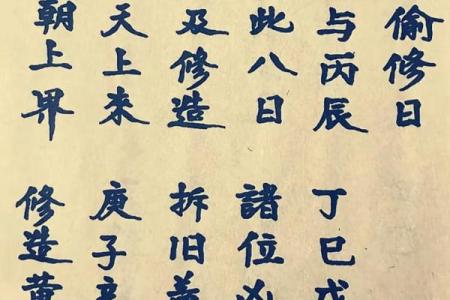 偷修日
与丙辰 丁巳戊
此八日 諸位凶
及修造 拆旧
天上來 庚子
朝上界 修造黄